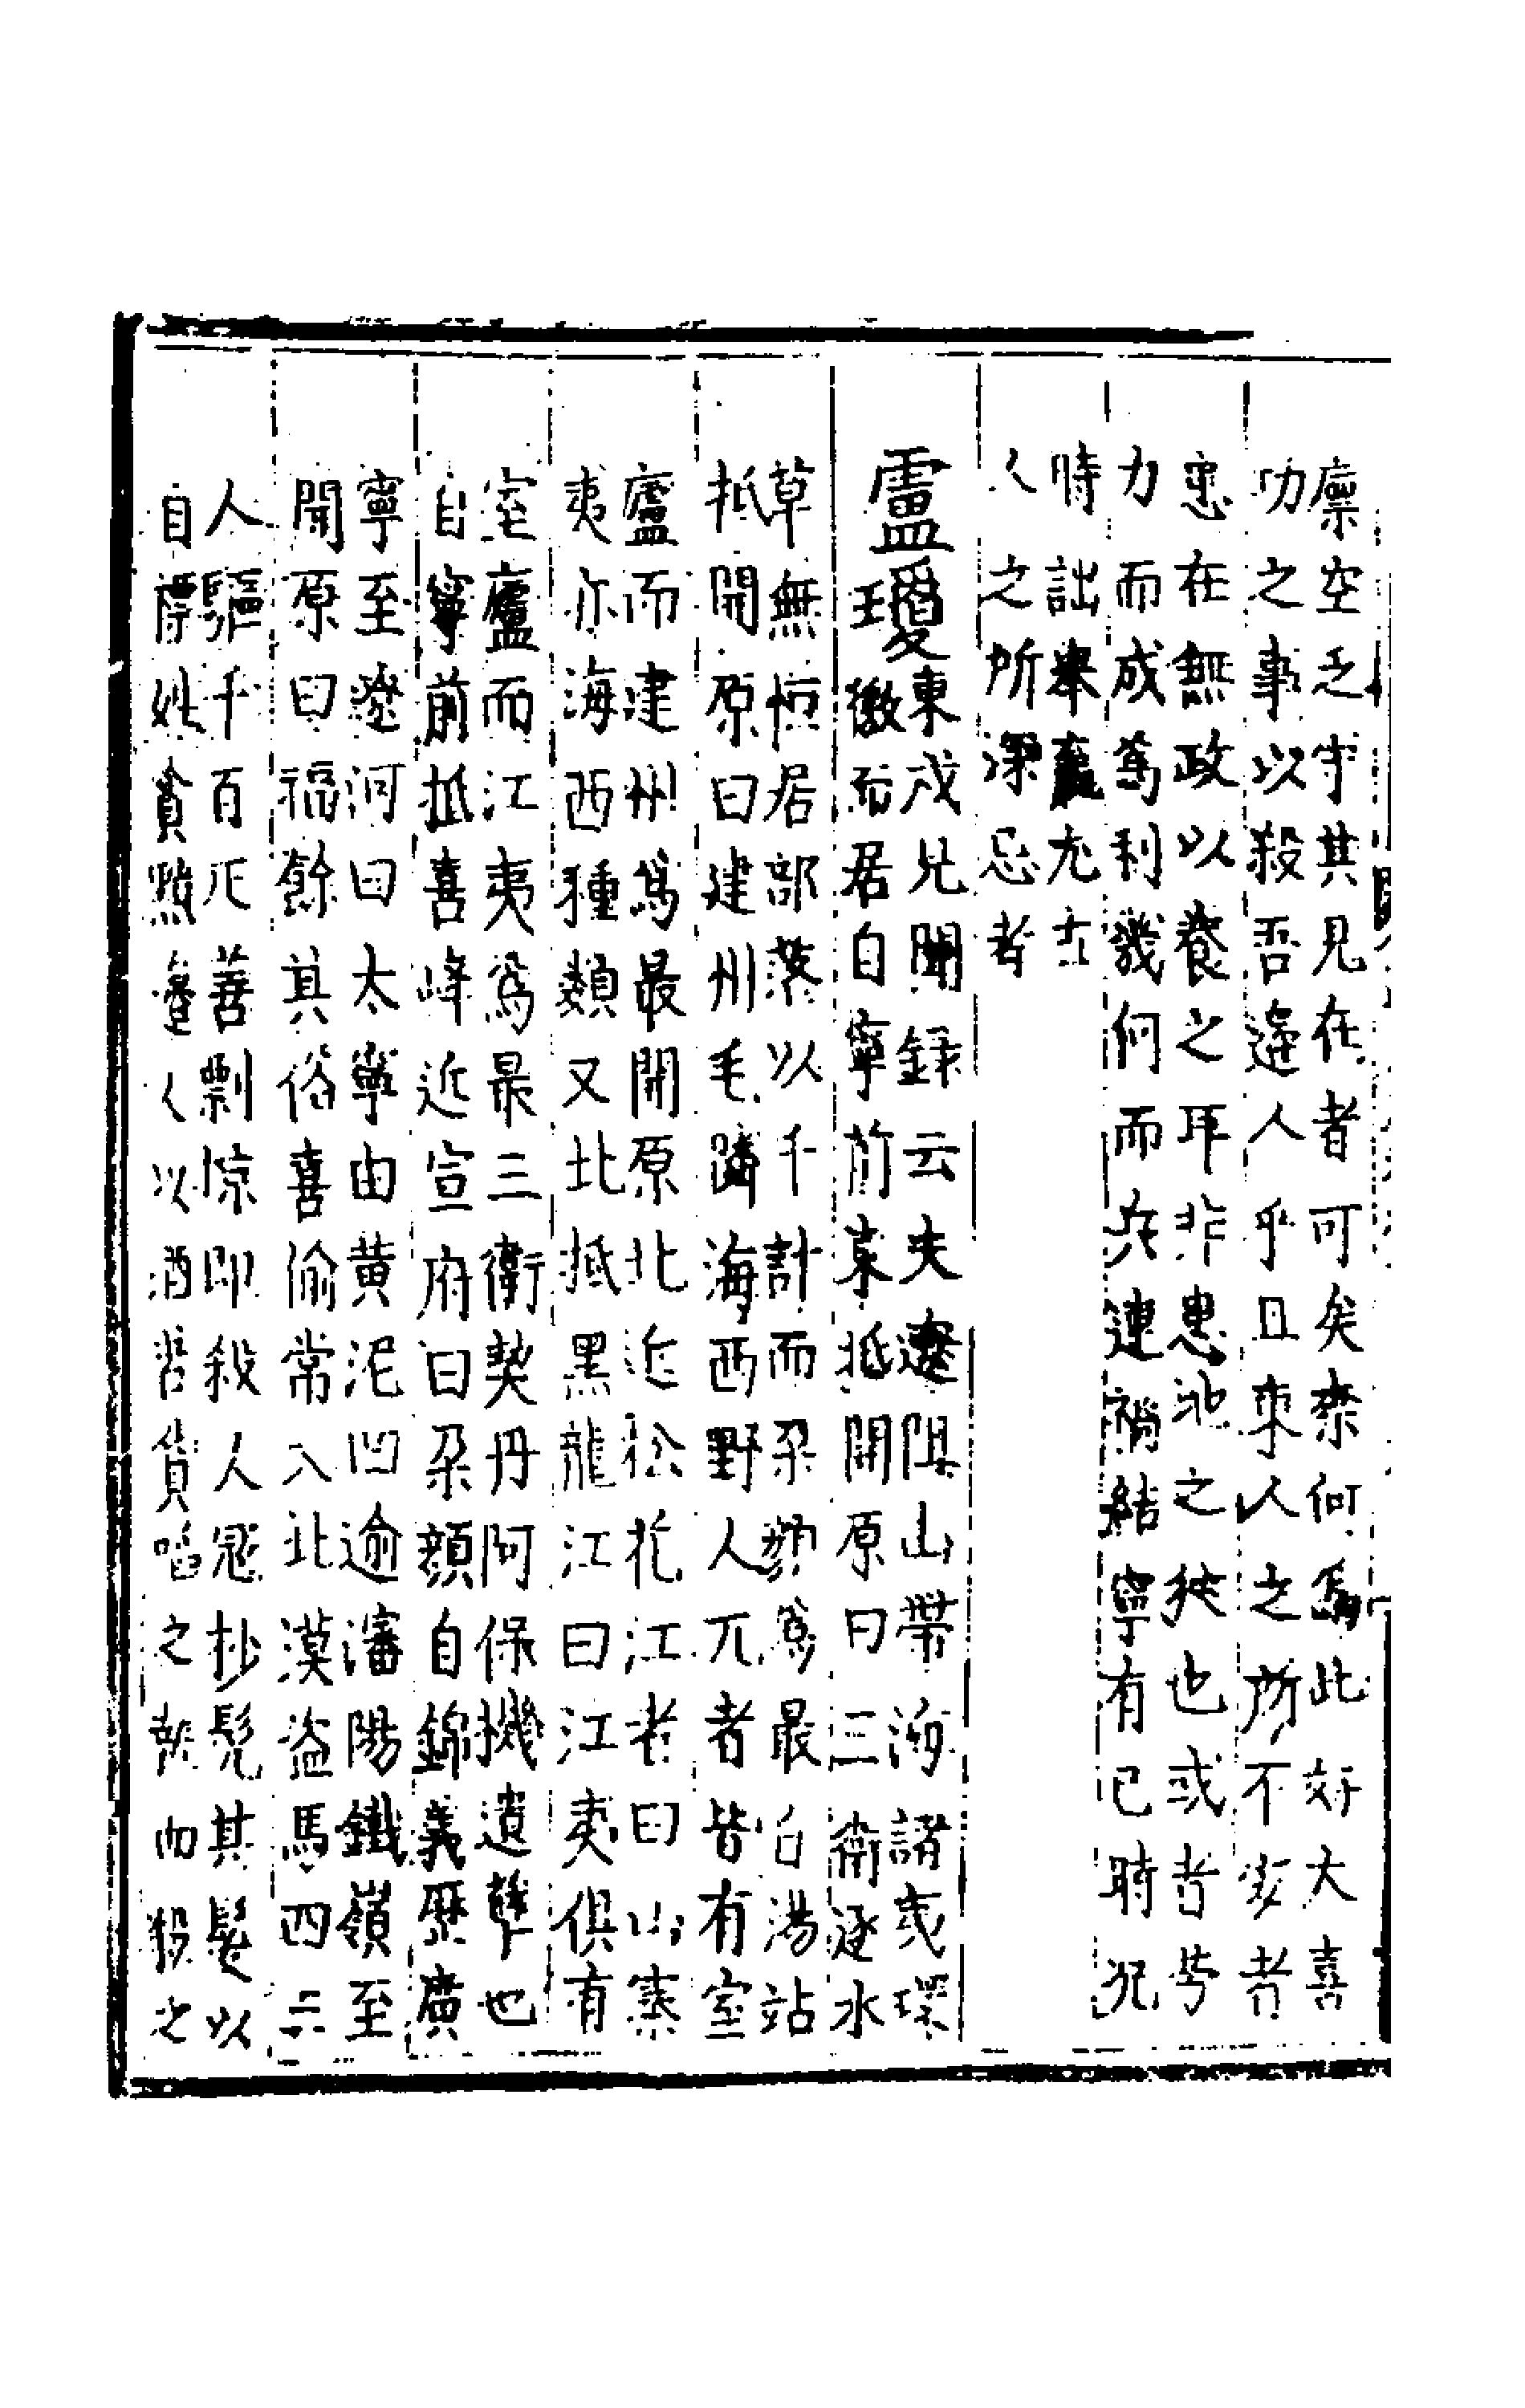 廩空乏守其見在者可矣柰何為此好大喜
功之事以殺吾邊人乎且夷人之所不安者
患在無政以養之耳非患地之狹也或者苟
力而成為利幾何而兵連禍結寧有已時況
時詘舉羸尤古
人之所深忌者
盧瓊東戍見聞錄云夫遼阻山帶海諸夷環
徼而居自寧前東抵開原曰三衛逐水
草無恒居部落以千計而朶顏為最自湯站
抵開原曰建州毛憐海西野人兀者皆有室
廬而建州為最開原北近松花江者曰山寨
夷亦海西種類又北抵黑龍江曰江夷俱有
室廬而江夷為最三衛契丹阿保機遺孽也
自寧前抵喜峰近宣府曰朶顏自錦義歷廣
寧至遼河曰太寧由黃泥凹逾瀋陽鐵嶺至
開原曰福餘其俗喜偷常入北漠盜馬四三
人驅千百匹善剽惊即殺人忍抄髡其髮以
自標姓貪黠邊人以酒哲貨啗之執而殺之